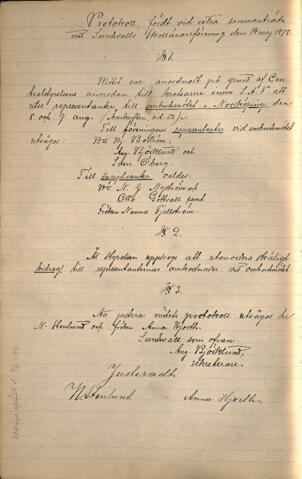 Protokoll, fördt vid extra sammanträde
med Sundsvalls Skollärareförening den 14 maj 1898.
§ 1.
Mötet var anordnadt på grund af Cen-
tralstyrelsens anmodan till kretsarne inom S.A.F. att
utse representanter till ombudsmötet i Norrköping den
8 och 9 aug.
Till föreningens representanter vid ombudsmötet
utsågos: Hrr N. Boström,
Aug. Björklund och
Sven Öberg.
Till suppleanter valdes:
Hrr N. G. Nyström och
Otto Göthvall samt
Fröken Nanna Fjellström.
§ 2.
Åt Styrelsen uppdrogs att utanordna skäligt
bidrag till representanternas omkostnader vid ombudsmötet.
§ 3.
Att justera mötets protokoll utsågos hr
N. Stenlund och fröken Anna Hjorth.
Sundsvall som ofvan.
Aug. Björklund,
sekreterare.
Justeradt
N. Stenlund Anna Hjorth